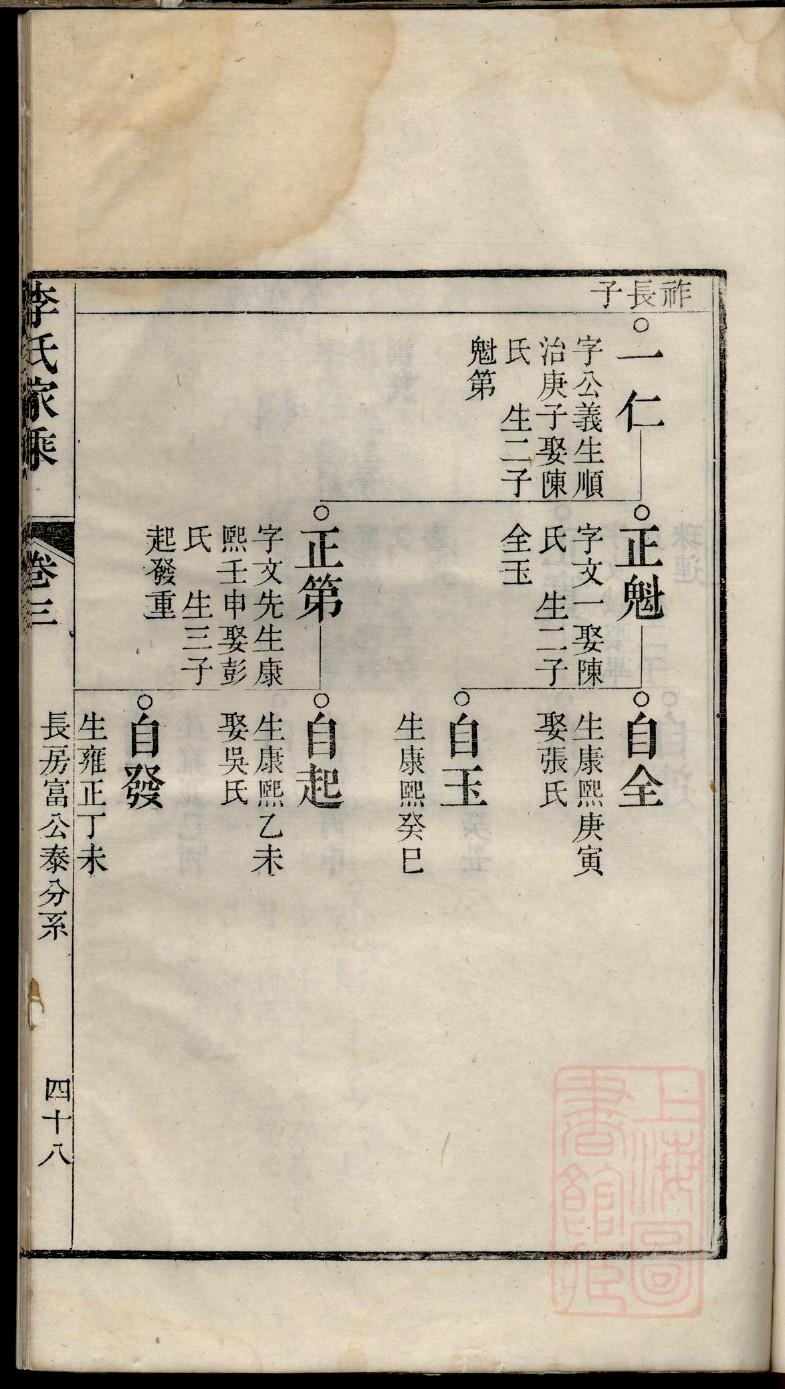 祚長子
一仁
字公義生順
治庚子娶陳
氏　生二子
魁第
正魁
字文一娶陳
氏　生二子
全玉
正第
字文先生康
熙壬申娶彭
氏　生三子
起發重
自全
生康熙庚寅
娶張氏
自玉
生康熙癸巳
自起
生康熙乙未
娶吳氏
自發
生雍正丁未
李氏家乘
卷三
長房富公泰分系
四十八
上海圖書館藏